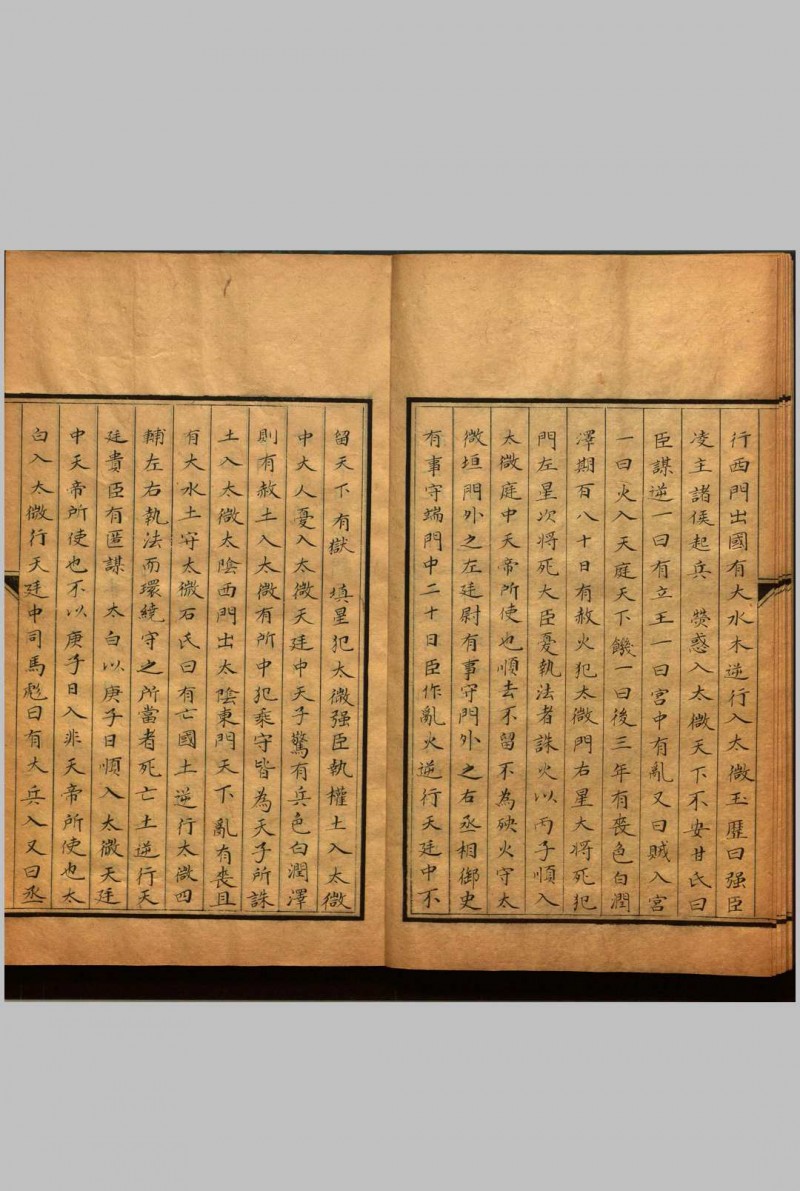 行西門出國有大水木逆行入太微玉歷曰强臣
凌主諸侯起兵　熒惑入太微天下不安甘氏曰
臣謀逆一曰有立王一曰宮中有亂又曰賊入宮
一曰火入天庭天下饑一曰後三年有喪色白潤
澤期百八十日有赦火犯太微門右星大將死犯
門左星次將死大臣憂執法者誅火以丙子順入
太微庭中天帝所使也順去不留不為殃火守太
微垣門外之左廷尉有事守門外之右丞相御史
有事守端門中二十日臣作亂火逆行天廷中不
留天下有獄　填星犯太微强臣執權土入太微
中大人憂入太微天廷中天子驚有兵色白潤澤
則有赦土入太微有所中犯乘守皆為天子所誅
土入太微太陰西門出太陰東門天下亂有喪且
有大水土守太微石氏曰有亡國土逆行太微四
輔左右執法而環繞守之所當者死亡土逆行天
廷貴臣有匿謀　太白以庚子日順入太微天廷
中天帝所使也不以庚子日入非天帝所使也太
白入太微行天廷中司馬彪曰有大兵入又曰丞